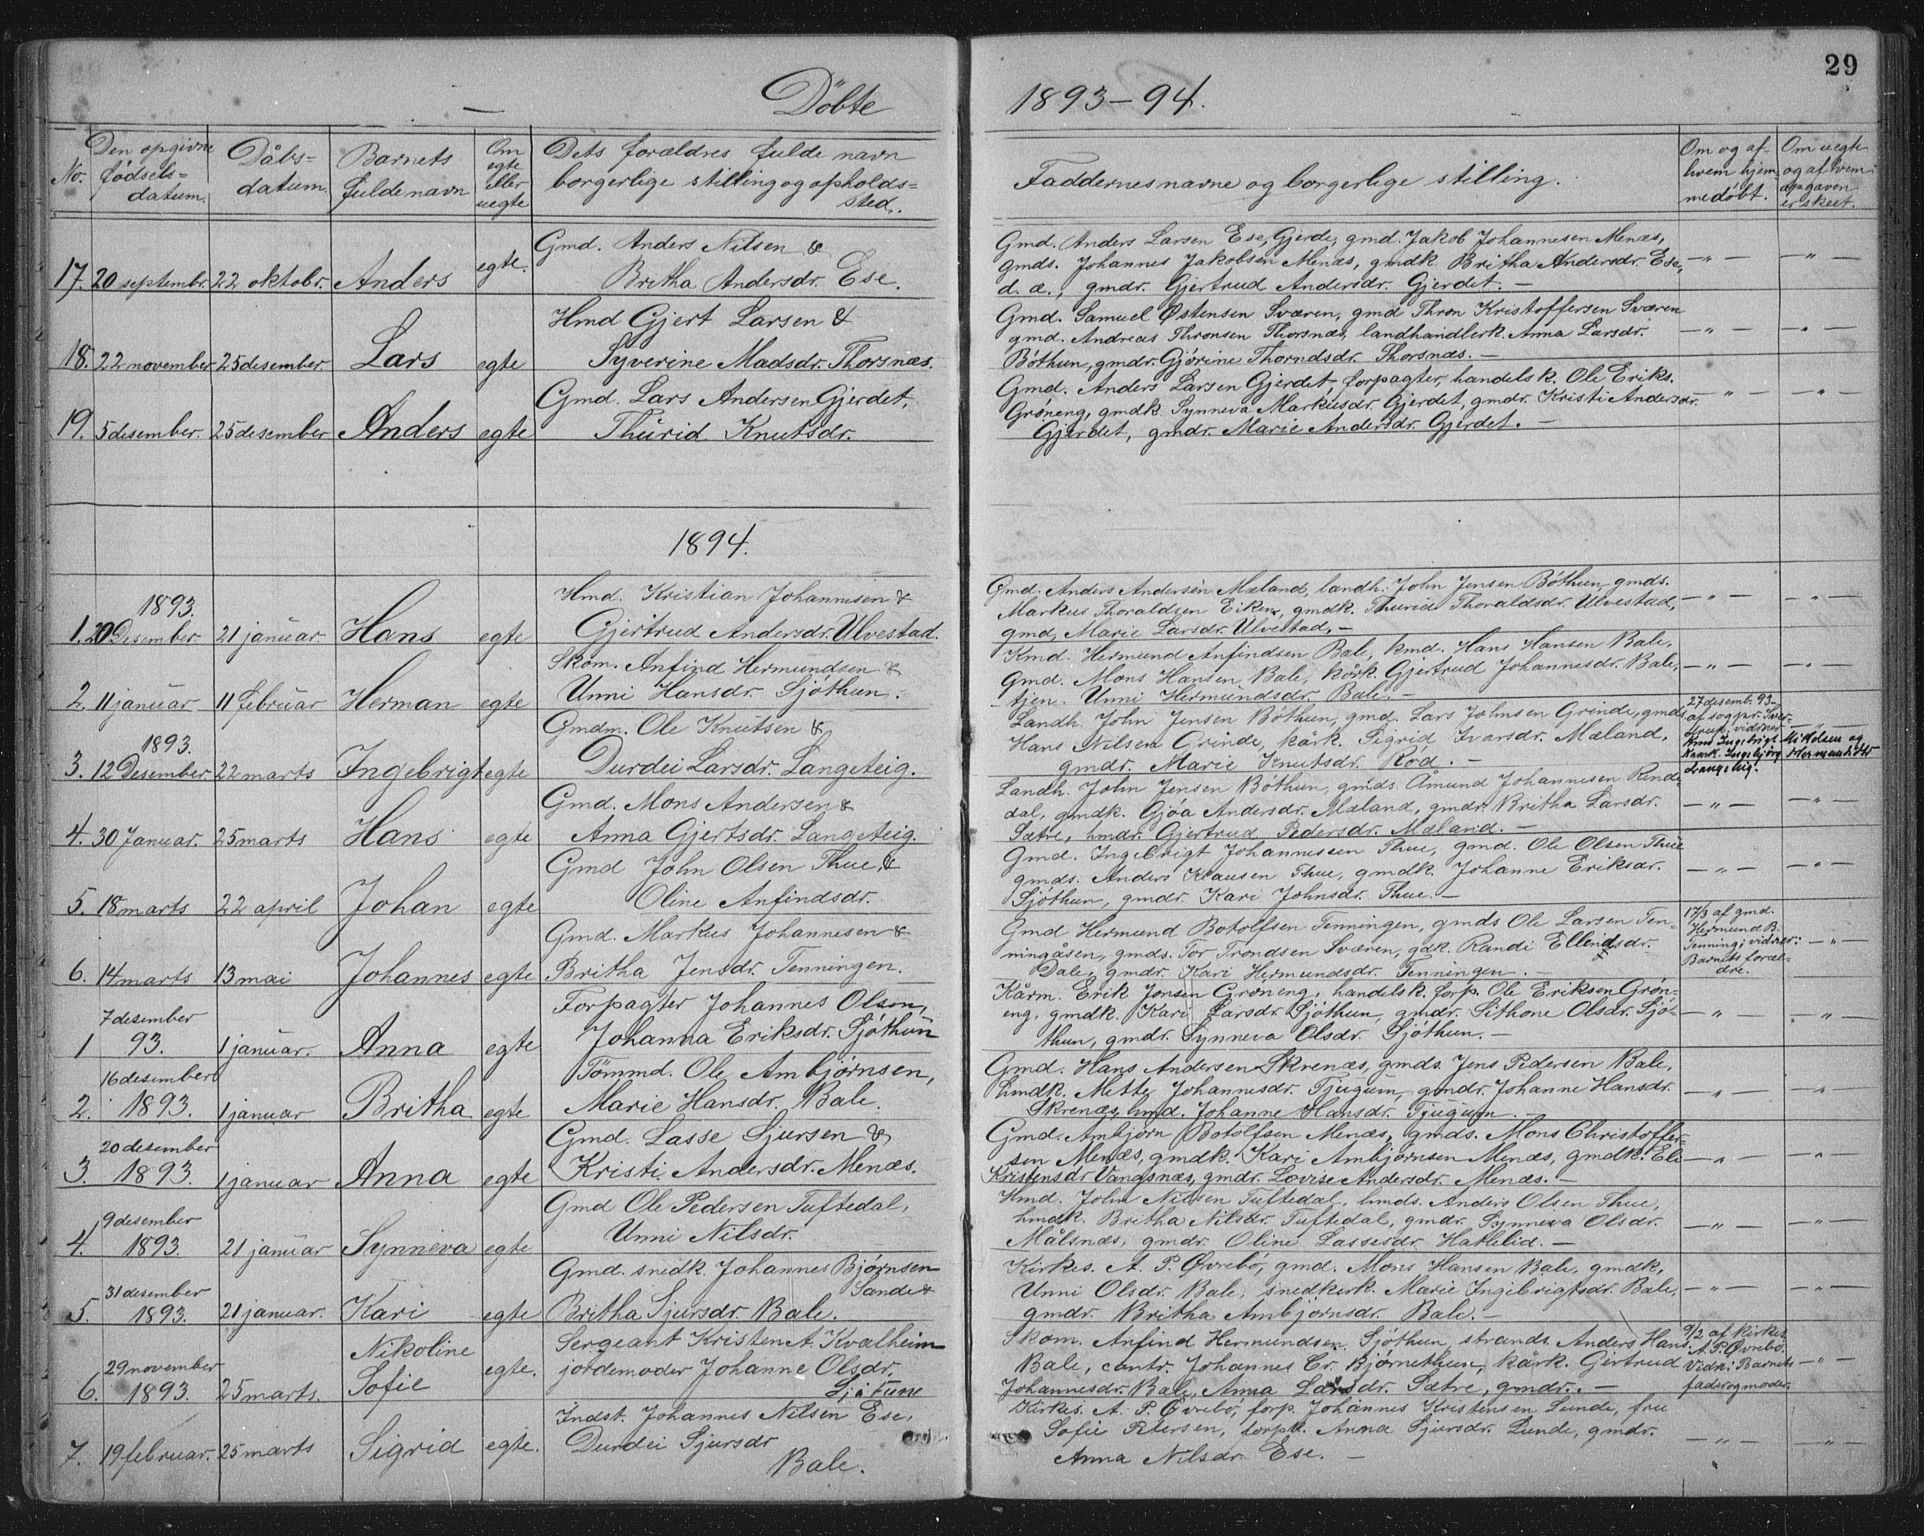 29
Döbte 1893-94.
No.
Den opgivne
fødsels=
datum.
Dåbs=
datum.
Barnets
fulde navn
Om
egte
eller
uegte
Dets forældres fulde navn
borgerlige stilling og opholds=
sted.
Faddernes navne og borgerlige stilling.
Om og af
hvem hjem
medøbt.
Om uegte
og af hvem
opgaven
er skeet.
Gmd. Anders Nilsen &
17. 20 septembr. 22 oktobr. Anders egte. Britha Andersdr. Ese.
Gmd. Anders Larsen Ese, Gjerde, gmd. Jakob Johannesen Menæs,
gmds. Johannes Jakobsen Menæs, gmdk. Britha Andersdr. Ese, — „ — — „ —
d. æ., gmdr. Gjertrud Andersdr. Gjerdet. —
Hmd Gjert Larsen &
18. 22 november 25 desember. Lars egte Syverine Madsdr. Thorsnæs.
Gmd. Samuel Østensen Sværen, gmd Thron Kristoffersen Sværen
gmd. Andreas Thronsen Thorsnæs, landhandlerk. Anna Larsdr. — „ — — „ —
Böthun, gmdr. Gjörine Thorndsdr. Thorsnæs. —
Gmd. Lars Andersen Gjerdet,
19. 5 desember. 25 desember Anders egte Thurid Knutsdr.
Gmd. Anders Larsen Gjerdet, forpagter, handelsk. Ole Eriks.
Gröneng, gmdk. Synneva Markusdr. Gjerdet, gmdr. Kristi Andersdr. — „ — — „ —
Gjerdet, gmdr. Marie Andersdr. Gjerdet. —
1894.
1893. Hmd. Kristian Johannesen &
1. 20 Desember 21 januar. Hans egte Gjertrud Andersdr. Ulvestad.
Gmd. Anders Andersen Mæland, landh. John Jensen Böthun, gmds.
Markus Thoraldsen Eiken, gmdk. Thurid Thoraldsdr. Ulvestad, — „ — — „ —
gmd. Marie Larsdr. Ulvestad. —
Skom. Anfind Hermundsen &
2. 11 januar 11 februar Herman egte Unni Hansdr. Sjöthun.
Kmd. Hermund Anfindsen Bale, kmd. Hans Hansen Bale,
Gmd. Mons Hansen Bale, kårk. Gjertrud Johannesdr. Bale, — „ — — „ —
tjen. Unni Hermundsdr. Bale. —
1893. Gmdm. Ole Knutsen &
3. 12 Desember 22 marts Ingebrigt egte Durdei Larsdr. Langeteig.
Landh. John Jensen Böthun, gmd. Lars Johnsen Grinde, gmds
Hans Nilsen Grinde, kårk. Sigrid Ivarsdr. Mæland,
gmdr. Marie Knutsdr. Röd. —
27 desemb. 93
af sogpr. Sver-
drup, vidner:
Kmd Ingebrigt Mikelsen og
Kaark. Ingebjörg Hermundsdtr
Langeteig.
Gmd. Mons Andersen &
4. 30 Januar. 25 marts Hans egte Anna Gjertsdr. Langeteig.
Landh. John Jensen Böthun, gmds. Åmund Johannesen Rende-
dal, gmdk. Gjöa Andersdr. Mæland, gmdr. Britha Larsdr. — „ — — „ —
Sætre, hmdr. Gjertrud Pedersdr. Mæland. —
Gmd John Olsen Thue, &
5. 18 marts 22 april Johan egte Oline Anfindsdr.
Gmd. Ingebrigt Johannessen Thue, gmd. Ole Olsen Thue
gmds. Anders Klausen Thue, gmdk. Johanne Eriksdr. — „ — — „ —
Sjöthun, gmdr. Kari Johnsdr. Thue. —
Gmd. Markus Johannesen &
6. 14 marts 13 mai Johannes egte Britha Jensdr. Tenningen.
Gmd Hermund Botolfsen Tenningen, gmds Ole Larsen Ten-
ningåsen, gmds. Tor Trondsen Sværen, gdk. Randi Ellendsdr.
Dale, gmdr. Kari Hermundsdr. Tenningen. —
17/3 af gmd.
Hermund B.
Tenning; vidner: — „ —
Barnets foræl-
dre.
7 desember Forpagter Johannes Olsen,
1 93. 1 januar. Anna egte Johanna Eriksdr. Sjöthun
Kårm. Erik Jonsen Gröneng, handelsk. forp. Ole Eriksen Grön-
eng, gmdk. Kari Larsdr Sjöthun, gmdr. Sithone Olsdr. Sjö- — „ — — „ —
thun, gmdr. Synneva Olsdr. Sjöthun. —
16 desember Tömmd. Ole Ambjörnsen,
2. 1893. 1 januar Britha egte Marie Hansdr. Bale.
Gmd. Hans Andersen Skrenæs, gmds. Jens Pedersen Bale,
hmdk. Mette Johannesdr. Tjugum, gmdr. Johanne Hansdr. — „ — „
Skrenæs, hmd. Johanne Hansdr. Tjugum. —
20 desember Gmd. Lasse Sjursen &
3. 1893. 1 januar Anna egte Kristi Andersdr. Menæs.
Gmd. Ambjörn Botolfsen Menæs, gmds. Mons Christoffer-
sen Menæs, gmdk. Kari Ambjörnsen Menæs, gmdk. Eli — „ — — „ —
Kristensdr Vangsnæs, gmdr. Lovise Andersdr. Menæs. —
9 desember Gmd Ole Pedersen Tuftedal,
4. 1893. 21 januar Synneva egte Unni Nilsdr.
Hmd. John Nilsen Tuftedal, hmds. Anders Olsen Thue,
hmdk. Britha Nilsdr. Tuftedal, gmdr. Synneva Olsdr. — „ — — „ —
Målsnæs, gmdr. Oline Lassesdr. Hatlelid. —
31 desember Gmd. snedk. Johannes Björnsen
Sande &
5. 1893. 21 januar. Kari egte Britha Sjursdr. Bale.
Kirkes. A. P. Övrebö, gmd. Mons Hansen Bale, gmdk,
Unni Olsdr. Bale, snedkerk. Marie Ingebrigtsdr. Bale, — „ — — „ —
gmdr. Britha Ambjörnsdr. Bale. —
Nikoline Sergeant Kristen A. Kvalheim
29 november egte. jordemoder Johanne Olsdr.
6. 1893. 25 marts. Sofie
Skom. Anfind Hermundsen Sjöthun, strands. Anders Hans.
Bale, contr. Johannes Cr. Björnethun, kårk. Gertrud
Johannesdr. Bale, Anna Larsdr. Sætre, gmdr. —
9/2 af kirkes.
A. P. Övrebö.
Vidn: Barnets — „ —
fader og moder.
Indst. Johannes Nilsen Ese,
7. 19 februar. 25 marts Sigrid egte. Durdei Sjursdr
Bale.
Kirkes. A. P. Övrebö, forp. Johannes Kristensen Lunde, fru
Sofie Petersen, forpk. Anna Sjursdr. Lunde, gmdr. — „ — — „ —
Anna Nilsdr. Ese. —